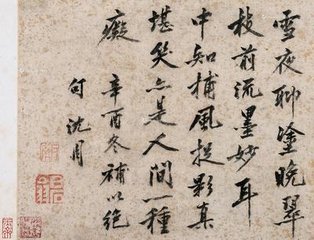 雪夜聊塗晚翠
枝前流墨妙耳
中知捕風捉影真
堪笑亦是人間一種
癡
辛酉冬補以絶
句 沈周